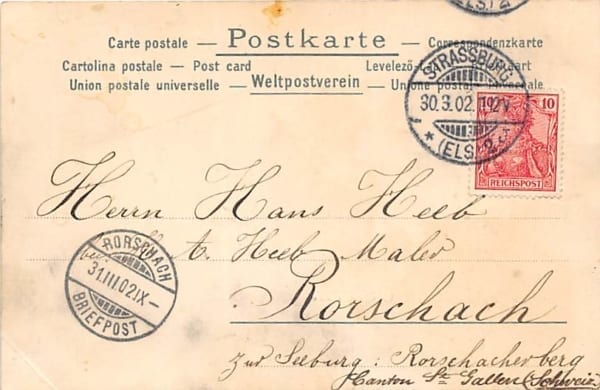 (ELS.) 2
Carte postale — Postkarte — Correspondenzkarte
Cartolina postale — Post card Levelező-
Union postale universelle — Weltpostverein — Unione postale universale
STRASSBURG
30.3.02.
* (ELS.) 2
10 10
REICHSPOST
Herrn Hans Heeb
A. Heeb Maler
RORSCHACH
31.III.02.IX-
BRIEFPOST
Rorschach
zur Seeburg: Rorschacherberg
Kanton St. Gallen (Schweiz)